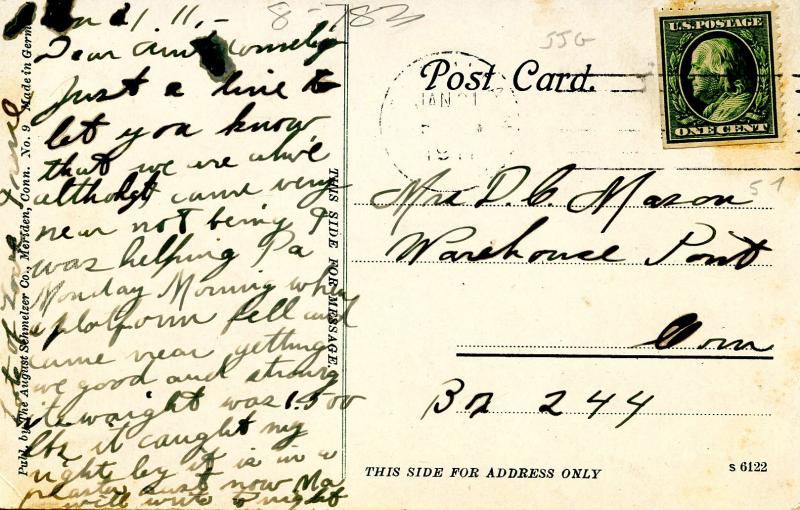 Jan 21. 11. -
Dear Aunt
Just a line to
let you know
that we are alive
althoght came very
near not being I
was helping Pa
Monday Morning when
a platform fell and
came near getting
me good and strong
its waight was 1500
lbs it caught my
right
plaster just now Ma
will write to night
Lots of love
Publ. by The August Schmelzer Co., Meriden, Conn. No. 9 Made in Germ
THIS SIDE FOR MESSAGE
8-783
55G
Post Card.
JAN 21
191
U.S. POSTAGE
ONE CENT
51
Mrs D. C. Mason
Warehouse Point
Conn
Bx 244
THIS SIDE FOR ADDRESS ONLY
S 6122